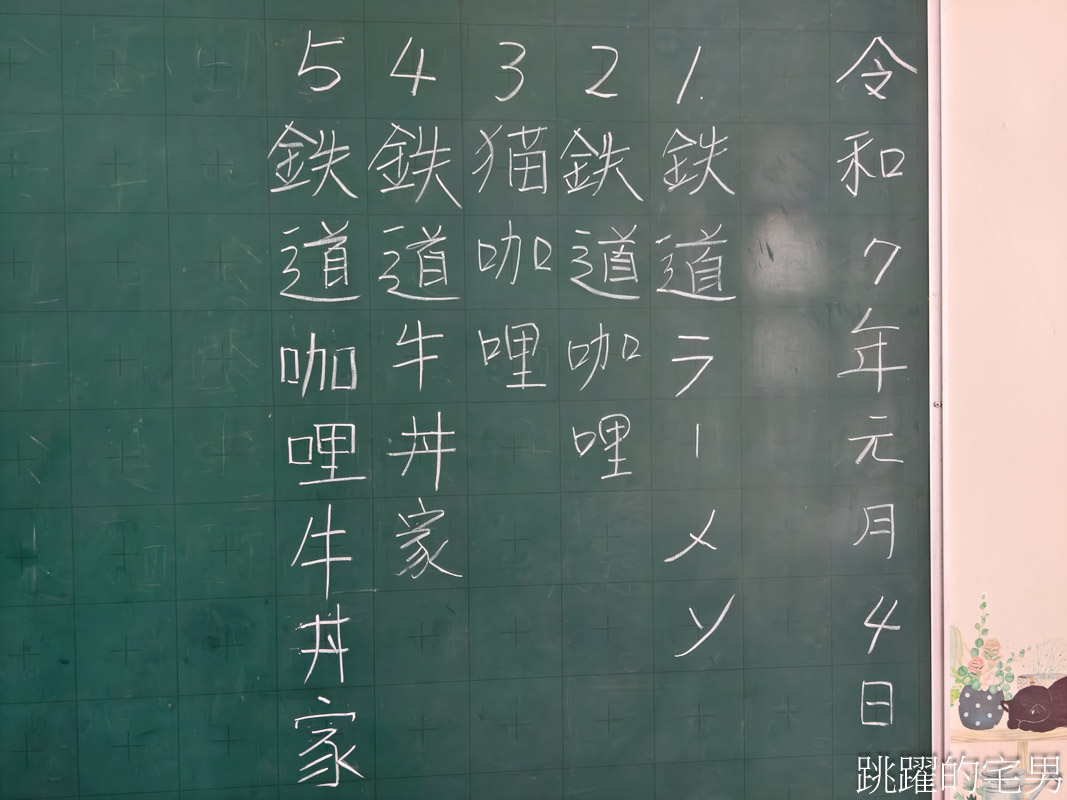 令和7年元月4日
1.鉄道ラーメソ
2鉄道咖哩
3猫咖哩
4鉄道牛丼家
5鉄道咖哩牛丼家
跳躍的宅男